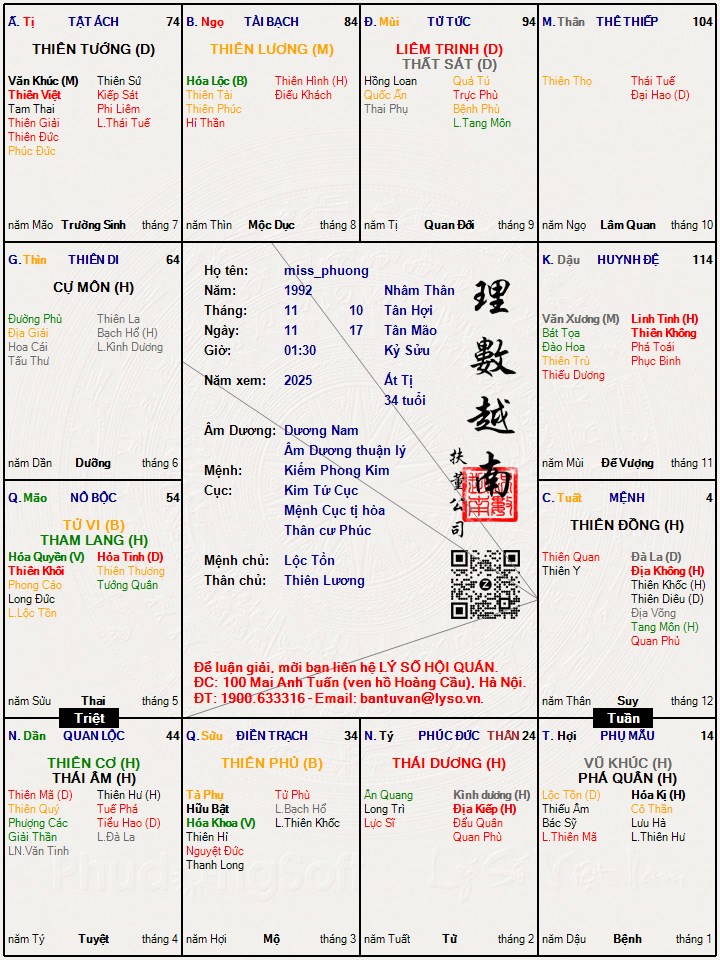 Ấ. Tị TẬT ÁCH 74
THIÊN TƯỚNG (D)
Văn Khúc (M) Thiên Sứ
Thiên Việt Kiếp Sát
Tam Thai Phi Liêm
Thiên Giải L.Thái Tuế
Thiên Đức
Phúc Đức
năm Mão Trường Sinh tháng 7
B. Ngọ TÀI BẠCH 84
THIÊN LƯƠNG (M)
Hóa Lộc (B) Thiên Hình (H)
Thiên Tài Điếu Khách
Thiên Phúc
Hỉ Thần
năm Thìn Mộc Dục tháng 8
Đ. Mùi TỬ TỨC 94
LIÊM TRINH (D)
THẤT SÁT (D)
Hồng Loan Quả Tú
Quốc Ấn Trực Phù
Thai Phụ Bệnh Phù
L.Tang Môn
năm Tị Quan Đới tháng 9
M. Thân THÊ THIẾP 104
Thiên Thọ Thái Tuế
Đại Hao (D)
năm Ngọ Lâm Quan tháng 10
G. Thìn THIÊN DI 64
CỰ MÔN (H)
Đường Phù Thiên La
Địa Giải Bạch Hổ (H)
Hoa Cái L.Kình Dương
Tấu Thư
năm Dần Dưỡng tháng 6
Họ tên: miss_phuong
Năm: 1992 Nhâm Thân
Tháng: 11 10 Tân Hợi
Ngày: 11 17 Tân Mão
Giờ: 01:30 Kỷ Sửu
Năm xem: 2025 Ất Tị
34 tuổi
Âm Dương: Dương Nam
Âm Dương thuận lý
Mệnh: Kiếm Phong Kim
Cục: Kim Tứ Cục
Mệnh Cục tị hòa
Thân cư Phúc
Mệnh chủ: Lộc Tồn
Thân chủ: Thiên Lương
理數越南
扶董公司
Để luận giải, mời bạn liên hệ LÝ SỐ HỘI QUÁN.
ĐC: 100 Mai Anh Tuấn (ven hồ Hoàng Cầu), Hà Nội.
ĐT: 1900.633316 - Email: bantuvan@lyso.vn.
K. Dậu HUYNH ĐỆ 114
Văn Xương (M) Linh Tinh (H)
Bát Tọa Thiên Không
Đào Hoa Phá Toái
Thiên Trù Phục Binh
Thiếu Dương
năm Mùi Đế Vượng tháng 11
Q. Mão NÔ BỘC 54
TỬ VI (B)
THAM LANG (H)
Hóa Quyền (V) Hỏa Tinh (D)
Thiên Khôi Thiên Thương
Phong Cáo Tướng Quân
Long Đức
L.Lộc Tồn
năm Sửu Thai tháng 5
Triệt
C. Tuất MỆNH 4
THIÊN ĐỒNG (H)
Thiên Quan Đà La (D)
Thiên Y Địa Không (H)
Thiên Khốc (H)
Thiên Diêu (D)
Địa Võng
Tang Môn (H)
Quan Phủ
năm Thân Suy tháng 12
Tuần
N. Dần QUAN LỘC 44
THIÊN CƠ (H)
THÁI ÂM (H)
Thiên Mã (D) Thiên Hư (H)
Thiên Quý Tuế Phá
Phượng Các Tiểu Hao (D)
Giải Thần L.Đà La
LN.Văn Tinh
năm Tý Tuyệt tháng 4
Q. Sửu ĐIỀN TRẠCH 34
THIÊN PHỦ (B)
Tả Phụ Tử Phù
Hữu Bật L.Bạch Hổ
Hóa Khoa (V) L.Thiên Khốc
Thiên Hỉ
Nguyệt Đức
Thanh Long
năm Hợi Mộ tháng 3
N. Tý PHÚC ĐỨC THÂN 24
THÁI DƯƠNG (H)
Ân Quang Kình dương (H)
Long Trì Địa Kiếp (H)
Lực Sĩ Đẩu Quân
Quan Phù
năm Tuất Tử tháng 2
T. Hợi PHỤ MẪU 14
VŨ KHÚC (H)
PHÁ QUÂN (H)
Lộc Tồn (D) Hóa Kị (H)
Thiếu Âm Cô Thần
Bác Sỹ Lưu Hà
L.Thiên Mã L.Thiên Hư
năm Dậu Bệnh tháng 1